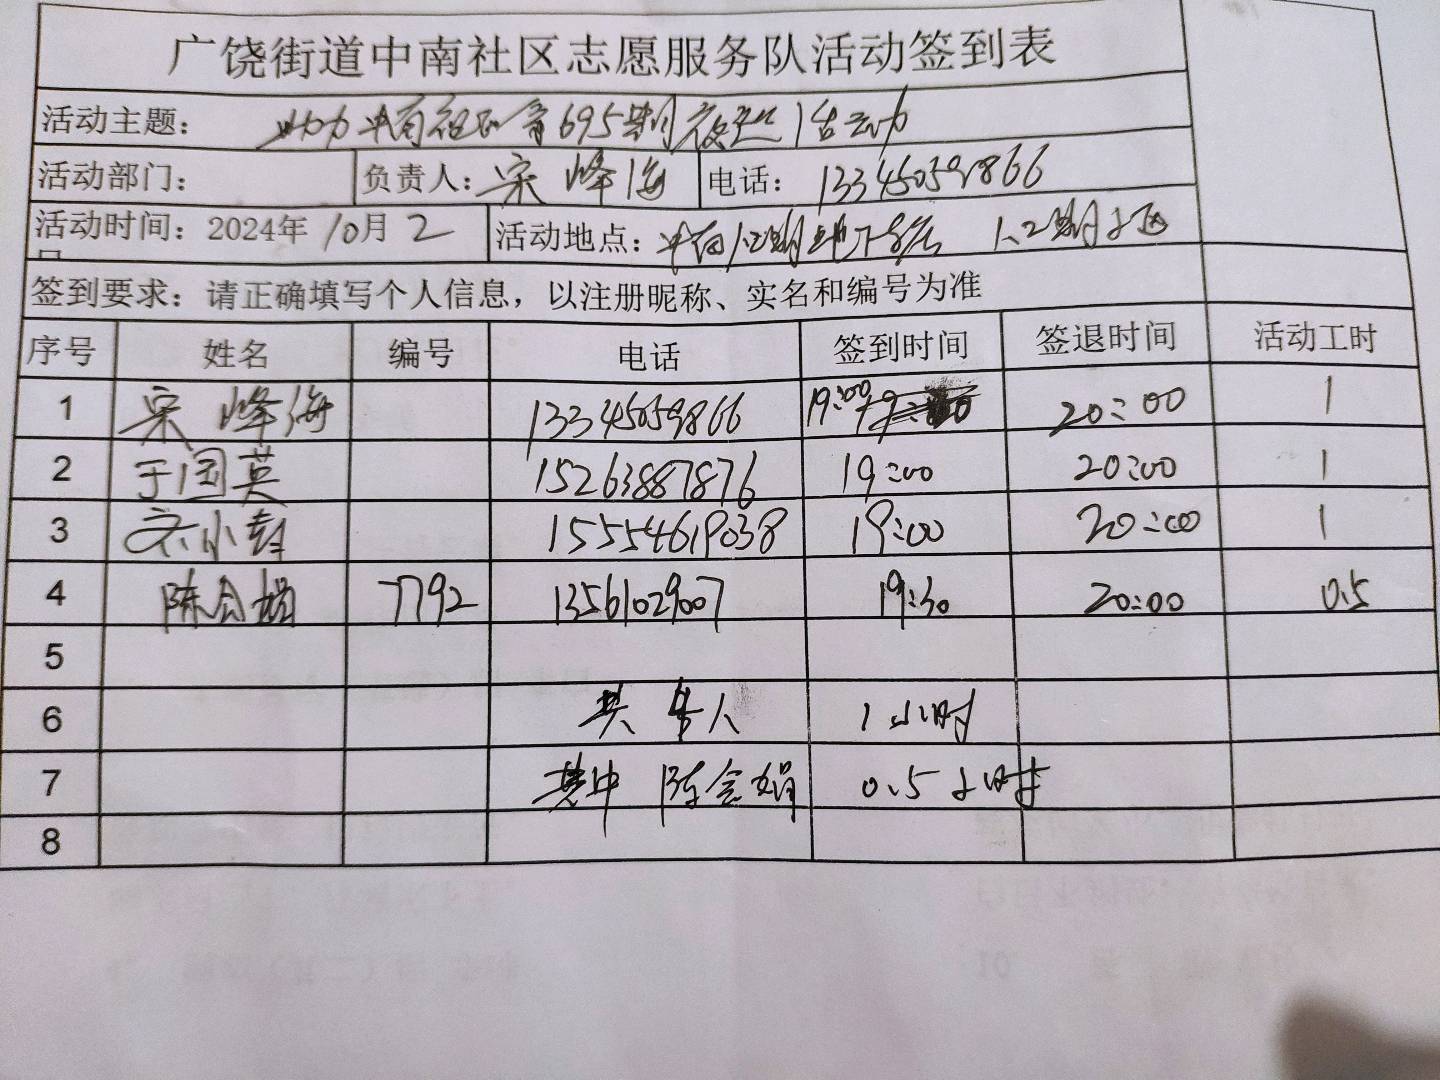 广饶街道中南社区志愿服务队活动签到表
活动主题： 助力中南社区第695期夜巡活动
活动部门： 负责人：宋峰海 电话：13345059866
活动时间：2024年10月2 活动地点：中南1.2期地下 1.2期小区
日
签到要求：请正确填写个人信息，以注册昵称、实名和编号为准
序号 姓名 编号 电话 签到时间 签退时间 活动工时
1 宋峰海 13345059866 19:00 20:00 1
2 于国英 15263887876 19:00 20:00 1
3 小 15554619038 19:00 20:00 1
4 陈会娟 7792 13561029007 19:30 20:00 0.5
5
6 共 人 1小时
7 其中 陈会娟 0.5小时
8